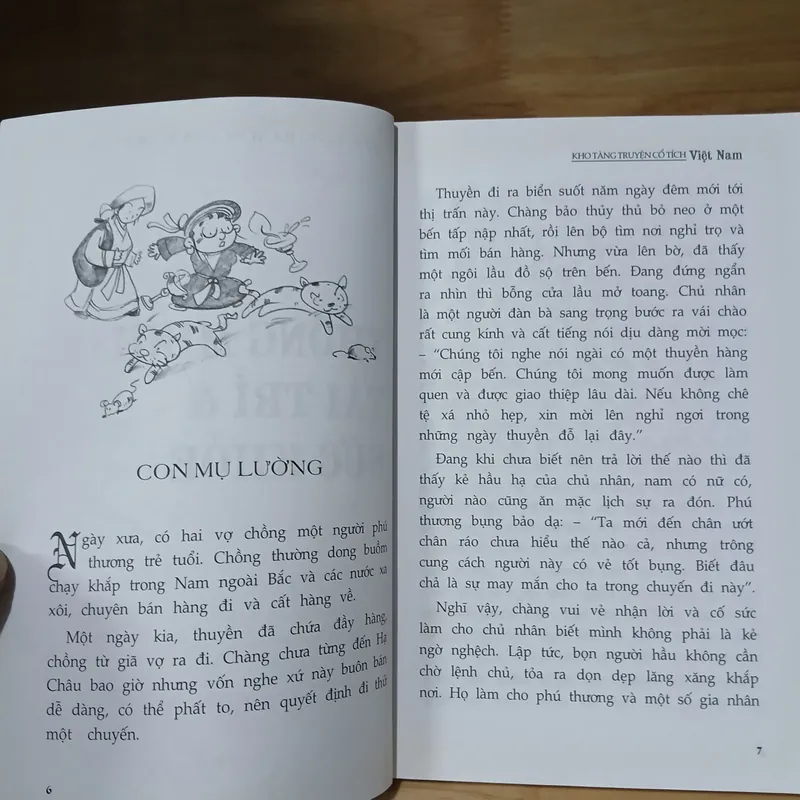 CON MỤ LƯỜNG
Ngày xưa, có hai vợ chồng một người phú
thương trẻ tuổi. Chồng thường dong buồm
chạy khắp trong Nam ngoài Bắc và các nước xa
xôi, chuyên bán hàng đi và cất hàng về.
Một ngày kia, thuyền đã chứa đầy hàng,
chồng từ giã vợ ra đi. Chàng chưa từng đến Hạ
Châu bao giờ nhưng vốn nghe xứ này buôn bán
dễ dàng, có thể phất to, nên quyết định đi thử
một chuyến.
6
KHO TÀNG TRUYỆN CỔ TÍCH Việt Nam
Thuyền đi ra biển suốt năm ngày đêm mới tới
thị trấn này. Chàng bảo thủy thủ bỏ neo ở một
bến tấp nập nhất, rồi lên bộ tìm nơi nghỉ trọ và
tìm mối bán hàng. Nhưng vừa lên bờ, đã thấy
một ngôi lầu đồ sộ trên bến. Đang đứng ngẩn
ra nhìn thì bỗng cửa lầu mở toang. Chủ nhân
là một người đàn bà sang trọng bước ra vái chào
rất cung kính và cất tiếng nói dịu dàng mời mọc:
– “Chúng tôi nghe nói ngài có một thuyền hàng
mới cập bến. Chúng tôi mong muốn được làm
quen và được giao thiệp lâu dài. Nếu không chê
tệ xá nhỏ hẹp, xin mời lên nghỉ ngơi trong
những ngày thuyền đỗ lại đây.”
Đang khi chưa biết nên trả lời thế nào thì đã
thấy kẻ hầu hạ của chủ nhân, nam có nữ có,
người nào cũng ăn mặc lịch sự ra đón. Phú
thương bụng bảo dạ: – “Ta mới đến chân ướt
chân ráo chưa hiểu thế nào cả, nhưng trông
cung cách người này có vẻ tốt bụng. Biết đâu
chả là sự may mắn cho ta trong chuyến đi này”.
Nghĩ vậy, chàng vui vẻ nhận lời và cố sức
làm cho chủ nhân biết mình không phải là kẻ
ngờ nghệch. Lập tức, bọn người hầu không cần
chờ lệnh chủ, tỏa ra dọn dẹp lăng xăng khắp
nơi. Họ làm cho phú thương và một số gia nhân
7